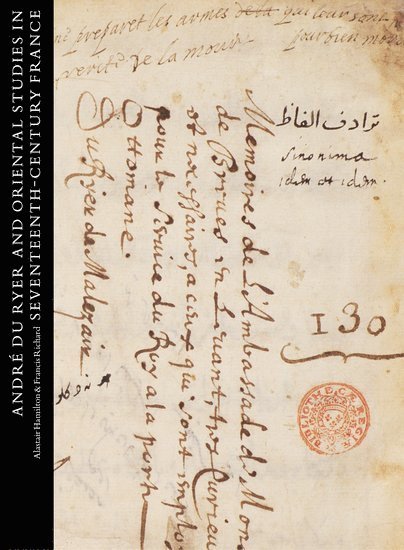 ANDRÉ DU RYER AND ORIENTAL STUDIES IN
SEVENTEENTH-CENTURY FRANCE
Alastair Hamilton & Francis Richard
preparet les armes qui leur sont
verité de la
ترادف الفاظ
sinonima
idem et idem.
Memoires de l'Ambassade de Mon
de Breves en Levant, tres Curieu
et necessaires, a ceux qui sont employ
pour le Service du Roy a la porte
Ottomane.
Du Ryer de Malezair
130
BIBLIOTHECA REGIA